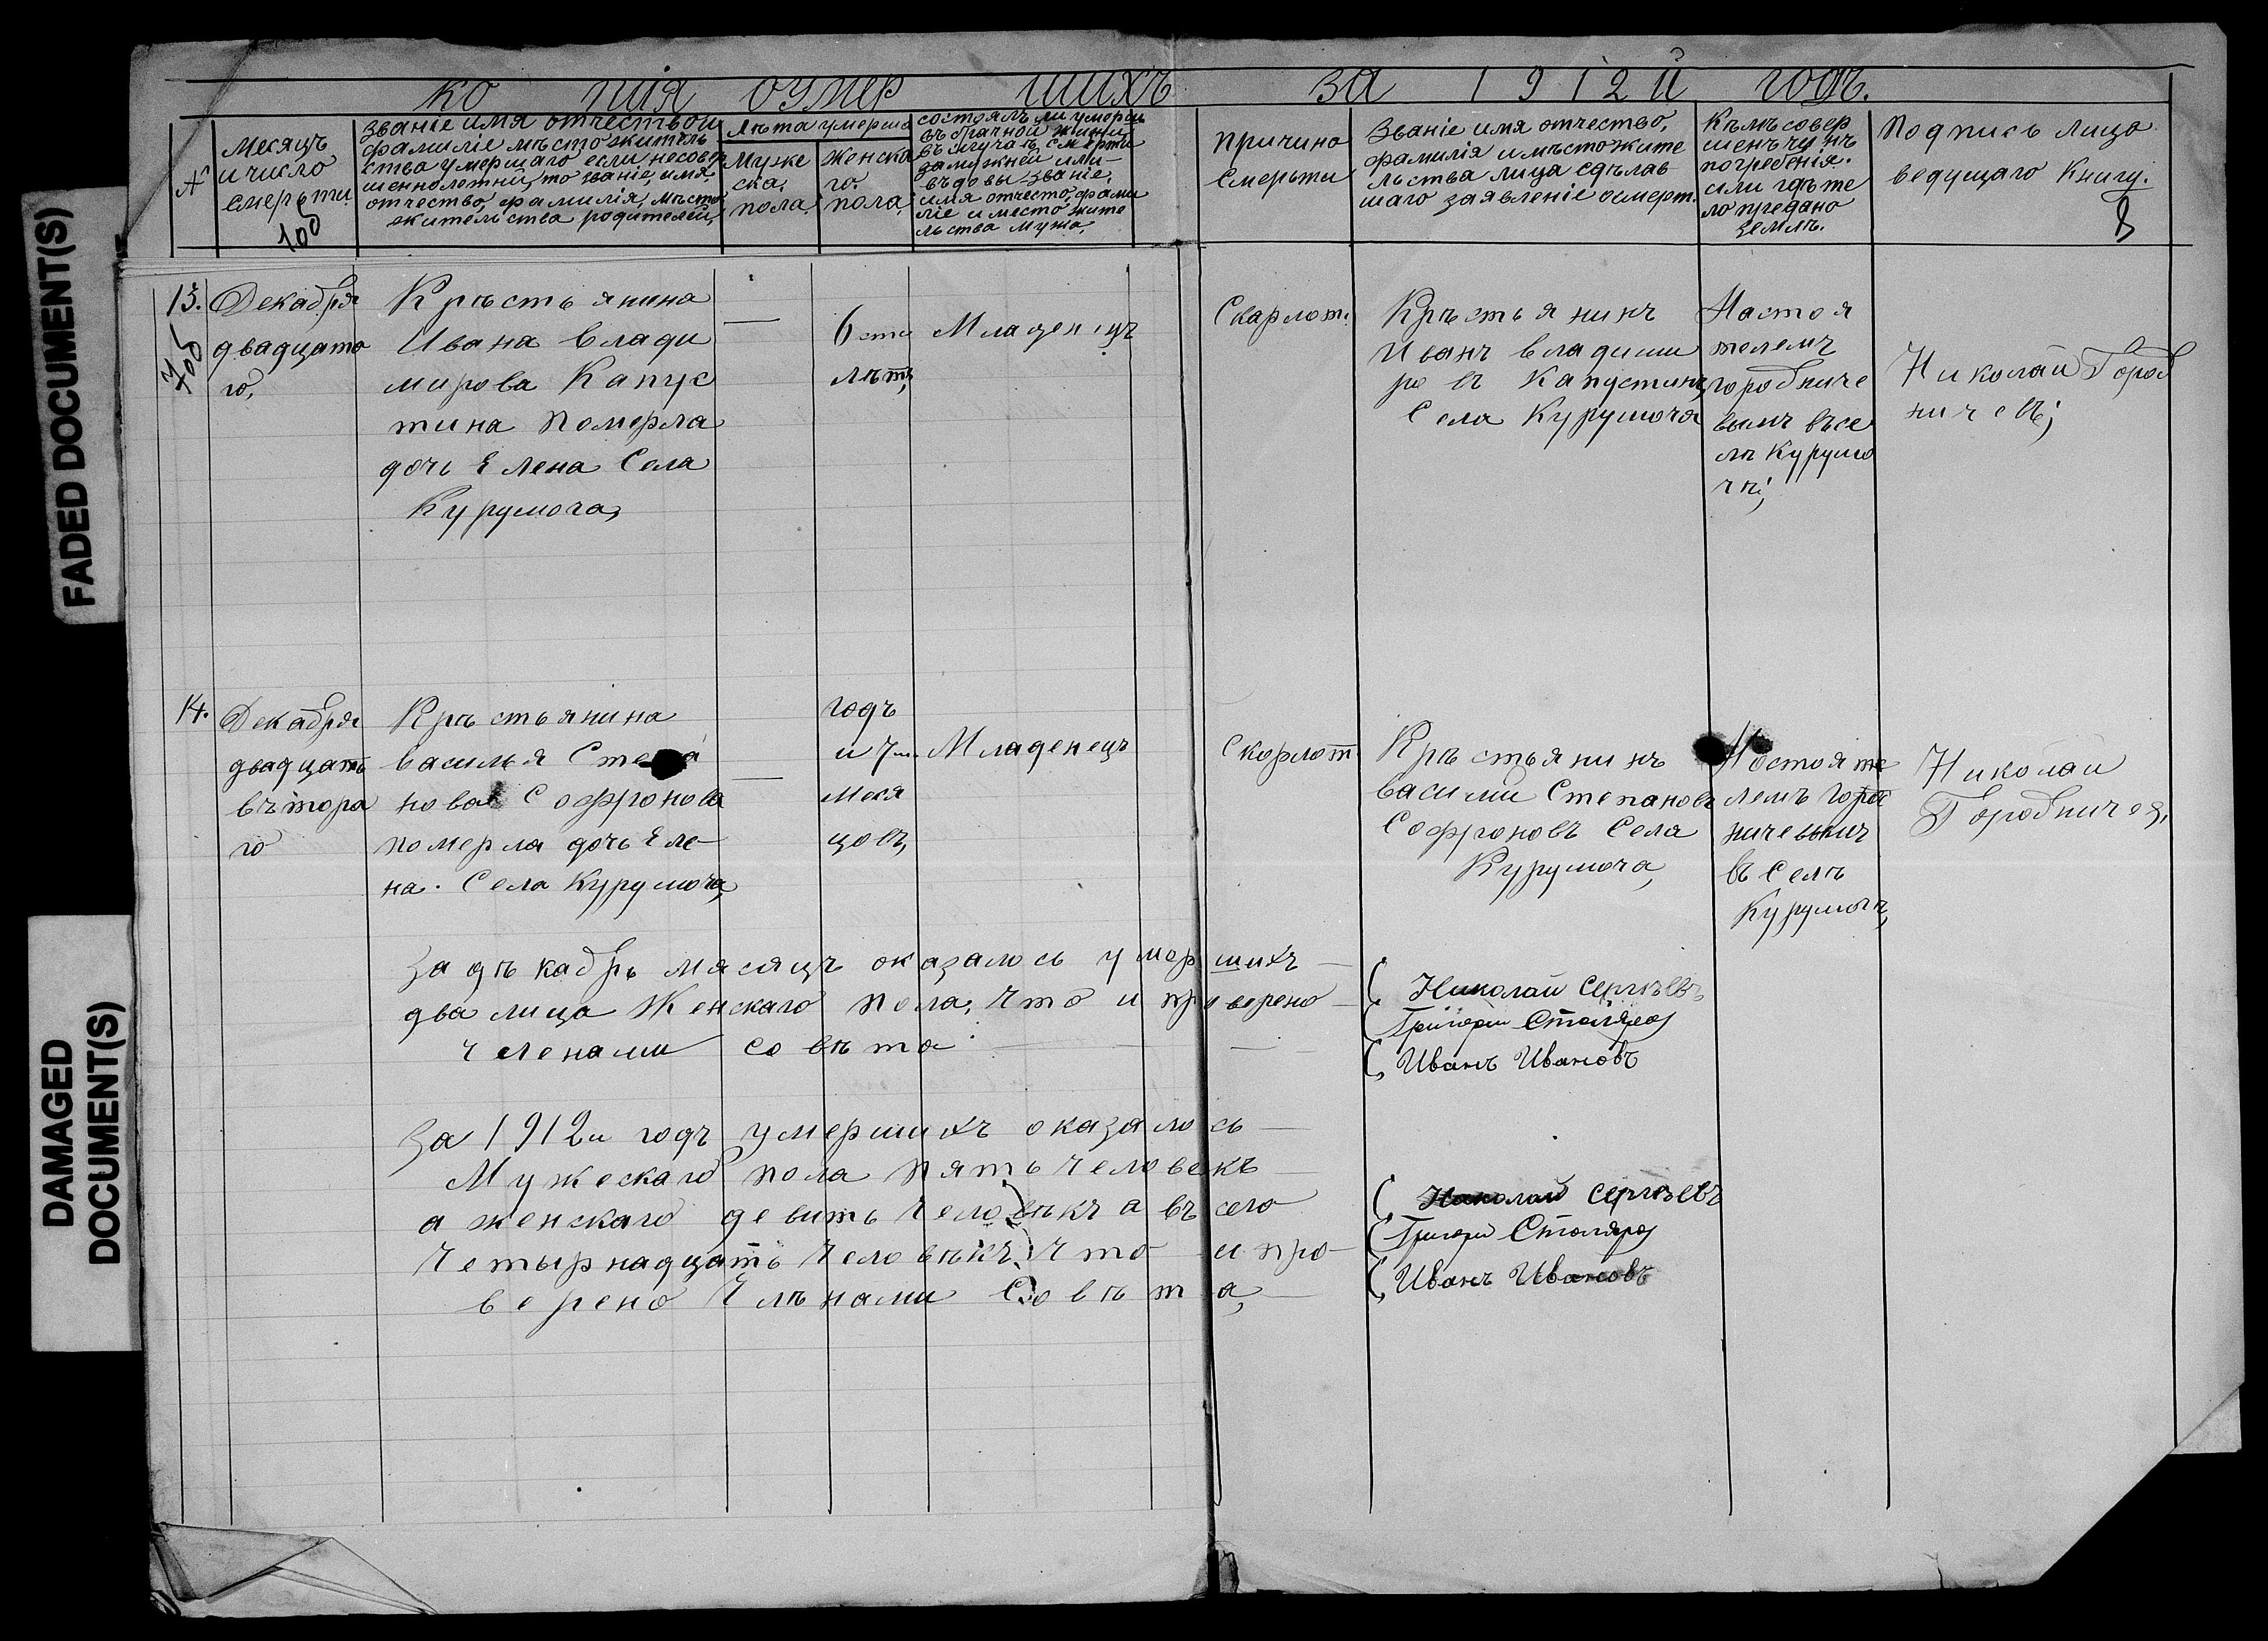 FADED DOCUMENT(S)
DAMAGED
DOCUMENT(S)
КО ПІЯ ОУМЕР ШИХЪ ЗА 1912Й ГОДЪ.
№
Месяцъ
и число
смерьти
100
Званіе имя отчествои
фамиліе мѣсто житель
ства умершаго если несовер
шеннолетній, то званіе, имя,
отчество, фамилія, мѣсто
жительства родителей,
Лѣта умерша
Муже
ска,
пола.
Женска
го.
пола,
состоялъ ли умерш
въ брачной жизни,
въ случаѣ смерти
замужней или-
въдовы званіе,
имя отчесто, фами
ліе и место жите
льства мужа,
причино
смерьти
Званіе имя отчество,
фамилія и мѣстожите
льства лица сдѣлав
шаго заявленіе осмерт.
Кѣмъ совер
шенъ чу нъ
погребенія.
или гдѣ те
ло предано
землѣ.
Подпись лица
ведущаго Книгу.
8
13.
Декабря
двадцато
го,
Крѣстьянина
Ивана Влади
мирова Капус
тина померла
дочь Елена Села
Курумоча,
—
6 сти
лѣтъ,
Младенецъ
Скарлот.
Крѣстьянинъ
Иванъ владими
ровъ Капустинъ,
Села Курумоча
Настоя
телемъ
городниче
вымъ въсе
лѣ Курумо
чѣ;
Николай Город
ничевъ;
14.
Декабря
двадцать
вътора
го
Крѣстьянина
василья Степа
нова Софронова
померла дочь Еле-
на. Села Курумоча,
—
годъ
и 7 ми
меся
цовъ,
Младенецъ
Скорлот
Крѣстьянинъ
василий Степановъ
Софроновъ Села
Курумоча,
Ностояте
лемъ Горо
ничевымъ
въ Селѣ
Курумочѣ,
Николай
Городничев,
За дѣкабрь мясяцъ оказалось умор шихъ —
два лица Женскаго пола, что и проверено —
членами совѣта.
( Николай Сергѣевъ
( Григорий Столяров
( Иванъ Ивановъ
За 1912й годъ умершихъ оказалось —
Мужескаго пола пять человекъ —
а женскаго девить человѣкъ а въ сего
Четырнадцать человѣкъ, что и про-
верено Члѣнами Совѣта, —
( Николай Сергѣевъ
( Григори Столяров
( Иванъ Ивановъ